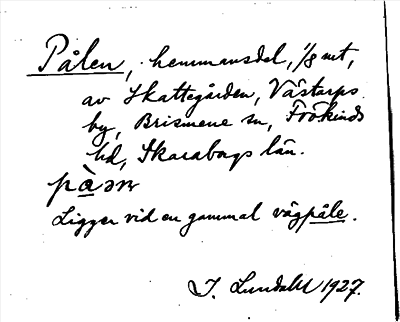 Pålen, hemmansdel, 1/8 mt,
av Skattegården, Västarps
by, Brismene sn, Frökinds
hd, Skaraborgs län.
Ligger vid en gammal vägpåle.
I. Lundahl 1927.